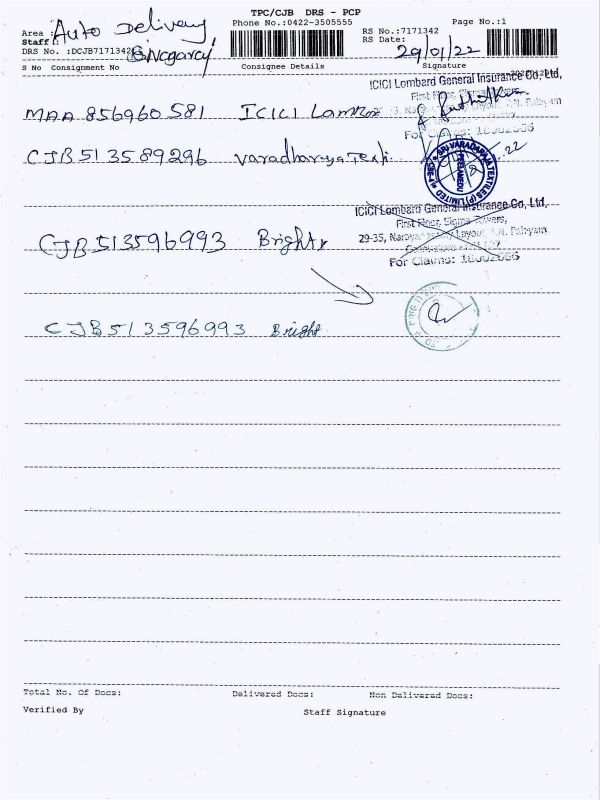 TPC/CJB DRS - PCP
Area : Auto Delivery
Phone No.:0422-3505555
Page No.:1
Staff :
RS No.:7171342
RS Date: 29/01/22
DRS No. :DCJB7171342
S No Consignment No Consignee Details Signature
ICICI Lombard General Insurance Co, Ltd,
MAA 856960581 ICICI Lombar
For Claims: 18002666
CJB513589296
SRI VARADARAJA TEXTILES (P) LIMITED
PEELAMEDU
CBE-4
ICICI Lombard General Insurance Co, Ltd,
First Floor, Sigma Towers,
29-35,
CJB513596993 Bright
For Claims: 18002666
CJB513596993 Bright
Total No. Of Docs: Delivered Docs: Non Delivered Docs:
Verified By Staff Signature